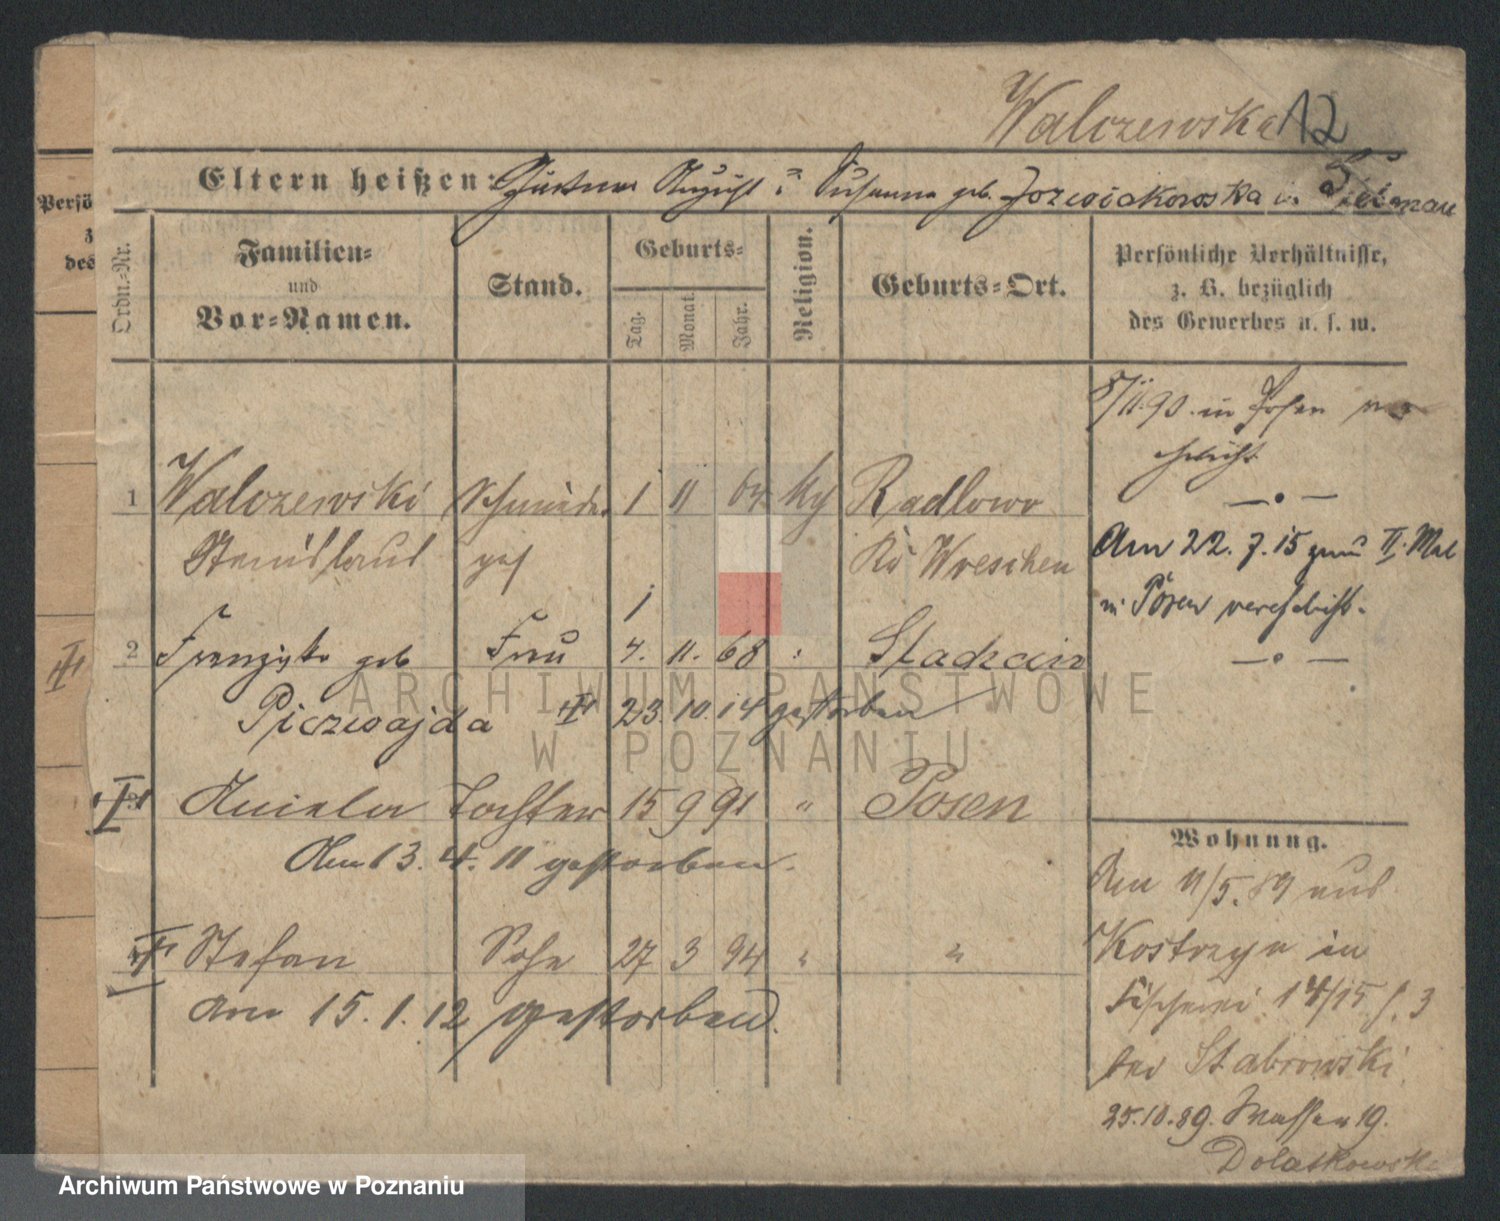 Walczewski 12
Eltern heißen: August u Susanna geb. in
Persö
z
des
Ordn.-Nr.
Familien-
und
Vor-Namen.
Stand.
Geburts-
Tag. Monat. Jahr.
Religion.
Geburts-Ort.
Persönliche Verhältnisse,
z. B. bezüglich
des Gewerbes u. s. w.
8/11.90. in Posen ver
ehelicht
1 Walczewski Schmiede 1 11 64 kg Radlowo
Stanislaus ges Krs Wreschen
Am 22. 7. 15 zum II. Mal
in Posen verehelicht.
2 Franziska geb Frau 7. 11. 68 "
23. 10. 14 gestorben
Aniela Tochter 15 9 91 " Posen
Am 13. 4. 11 gestorben.
Wohnung.
Am 11/5. 89 aus
Kostrzyn in
Stefan Sohn 27 3 94 " "
Fischerei 14/15 3
am 15. 1. 12 gestorben.
bei Stabrowski
25.10.89. Wasser 19.
Dolatkowski
ARCHIWUM PAŃSTWOWE
W POZNANIU
Archiwum Państwowe w Poznaniu